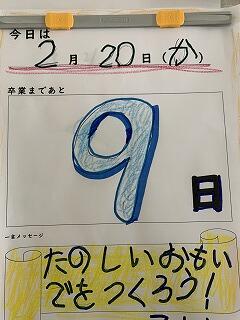 今日は
2月20日(か)
卒業まであと
9日
一言メッセージ
たのしいおもい
でをつくろう!